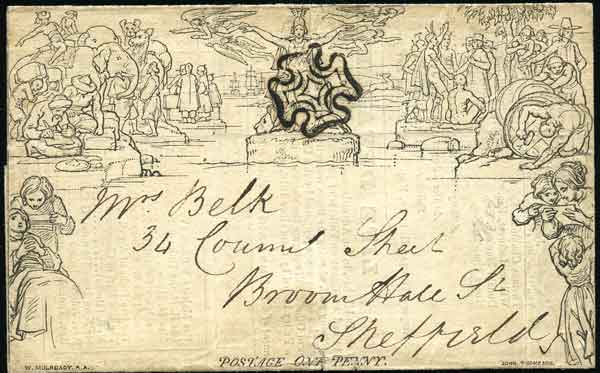 Mrs Belk
34 Street
Broom Hall St
Sheffield
POSTAGE ONE PENNY.
W. MULREADY, R.A.
JOHN THOMPSON